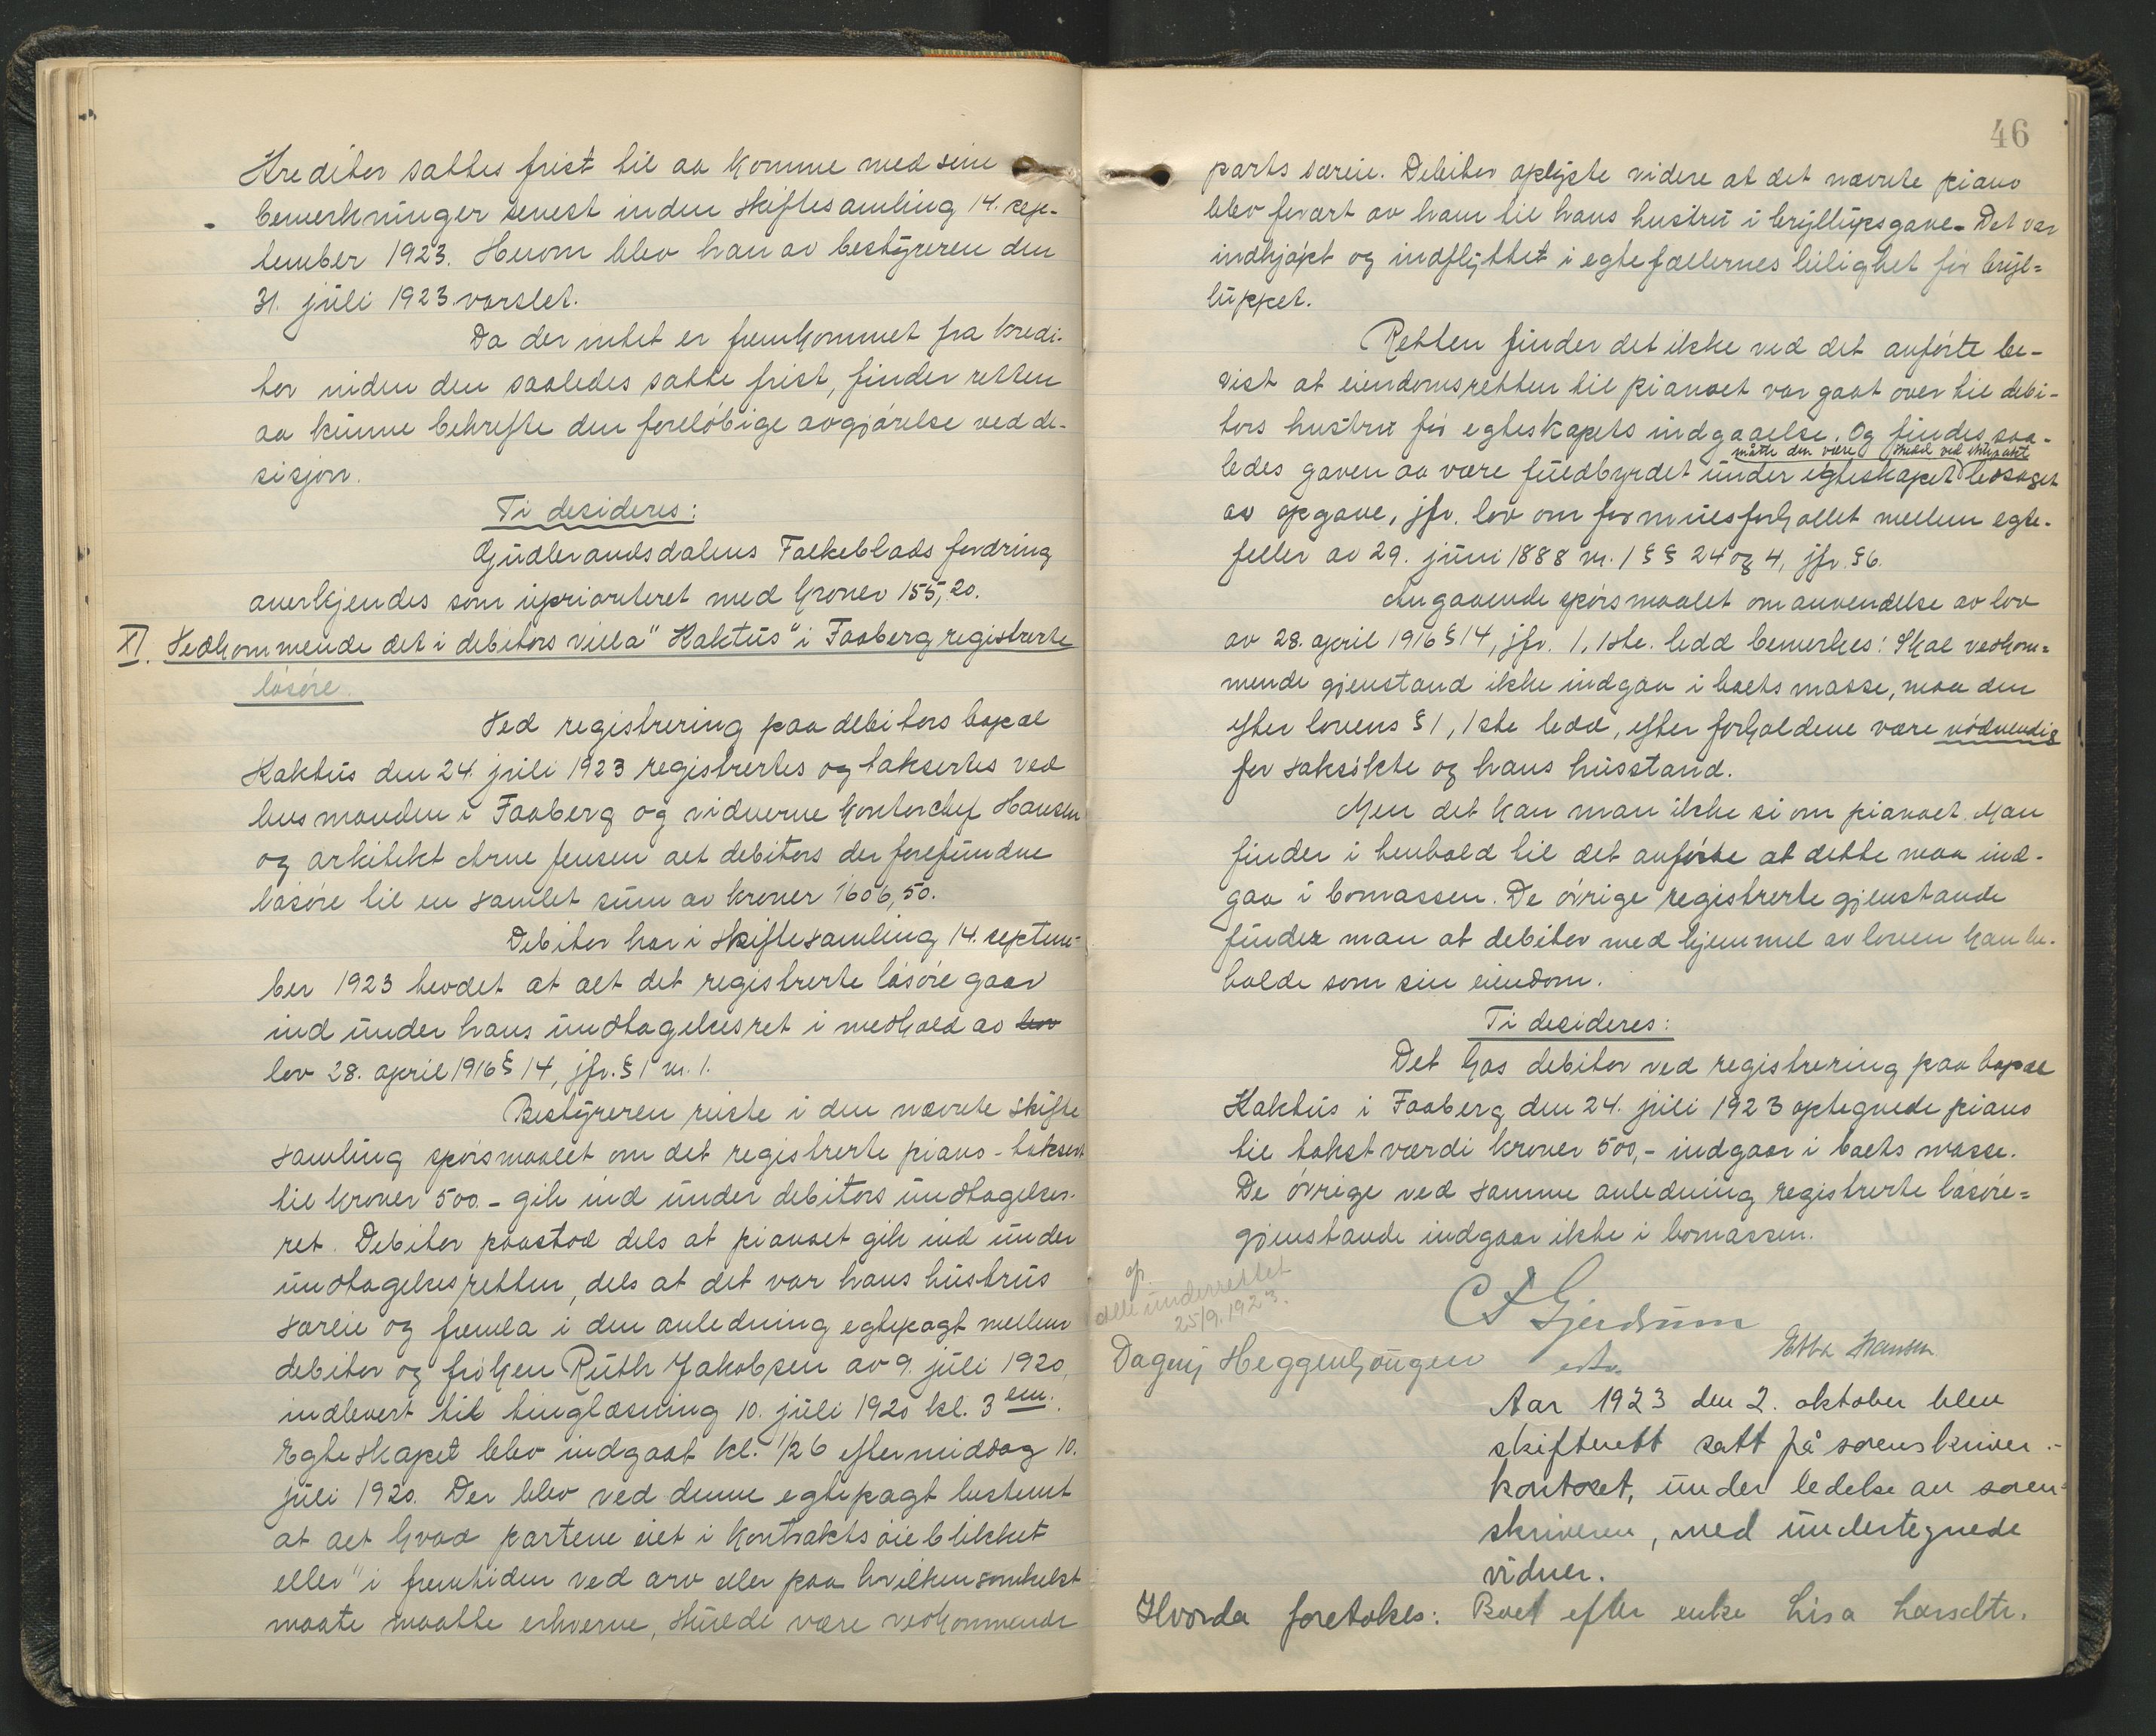 Kreditor sattes frist til aa komme med sine
bemerkninger senest inden skiftesamling 14. sep-
tember 1923. Herom blev han av bestyreren den
31. juli 1923 varslet.
Da der intet er fremkommet fra kredi-
tor inden den saaledes satte frist, finder retten
aa kunne bekrefte den foreløbige avgjørelse ved de-
sisjon.
Ti desideres:
Gudbrandsdalens Folkeblads fordring
anerkjendes som uprioriteret med kroner 155,20.
XI. Vedkommende det i debitors villa "Kaktus" i Faaberg registrerte
løsøre.
Ved registrering paa debitors bopæl
Kaktus den 24. juli 1923 registrertes og taksertes ved
lensmanden i Faaberg og vidnerne kontorchef Hansen
og arkitekt Arne Jensen alt debitors der forefundne
løsøre til en samlet sum av kroner 1606,50.
Debitor har i skiftesamling 14. septem-
ber 1923 hevdet at alt det registrerte løsøre gaar
ind under hans undtagelsesret i medhold av lov
lov 28. april 1916 § 14, jfr. § 1 nr. 1.
Bestyreren reiste i den nævnte skifte
samling spørsmaalet om det registrerte piano - taksert
til kroner 500.- gik ind under debitors undtagelses-
ret. Debitor paastod dels at pianoet gik ind under
undtagelsesretten, dels at det var hans hustrus
særeie og fremla i den anledning egtepagt mellem
debitor og frøken Ruth Jakobsen av 9. juli 1920,
indlevert til tinglæsning 10. juli 1920 kl. 3 em.
Egteskapet blev indgaat kl. 1/2 6 eftermiddag 10.
juli 1920. Der blev ved denne egtepagt bestemt
at alt hvad partene eiet i kontraktsøieblikket
eller "i fremtiden ved arv eller paa hvilkensomhelst
maate maatte erhverve, skulde være vedkommende
46
parts særeie. Debitor oplyste videre at det nævnte piano
blev forært av ham til hans hustru i bryllupsgave. Det var
indkjøpt og indflyttet i egtefællernes leilighet før bryl=
luppet.
Retten finder det ikke ved det anførte be-
vist at eiendomsretten til pianoet var gaat over til debi-
tors hustru før egteskapets indgaaelse. Og findes saa-
måtte den være
ledes gaven aa være fuldbyrdet under egteskapet ledsaget
av opgave, jfr. lov om formuesforholdet mellem egte-
feller av 29. juni 1888 nr. 1 §§ 24 og 4, jfr. §6.
Angaaende spørsmaalet om anvendelse av lov
av 28. april 1916 § 14, jfr. 1, 1ste. ledd bemerkes: Skal vedkom=
mende gjenstand ikke indgaa i boets masse, maa den
efter lovens § 1, 1ste ledd, efter forholdene være nødvendig
for saksøkte og hans husstand.
Men det kan man ikke si om pianoet. Man
finder i henhold til det anførte at dette maa ind-
gaa i bomassen. De øvrige registrerte gjenstande
finder man at debitor med hjemmel av loven kan be-
holde som sin eiendom.
Ti desideres:
Det hos debitor ved registrering paa bopæl
Kaktus i Faaberg den 24. juli 1923 optegnede piano
til takstværdi kroner 500,- indgaar i boets masse.
De øvrige ved samme anledning registrerte løsøre=
gjenstande indgaar ikke i bomassen.
alle underrettet
25/9. 1923.
C F Gjerdrum
Dagny Heggenhougen Ebba Hansen
Aar 1923 den 2. oktober blev
skifterett satt på sorenskriver-
kontoret, under ledelse av soren-
skriveren, med undertegnede
vidner.
Hvorda foretokes: Boet efter enke Lisa Larsdtr.